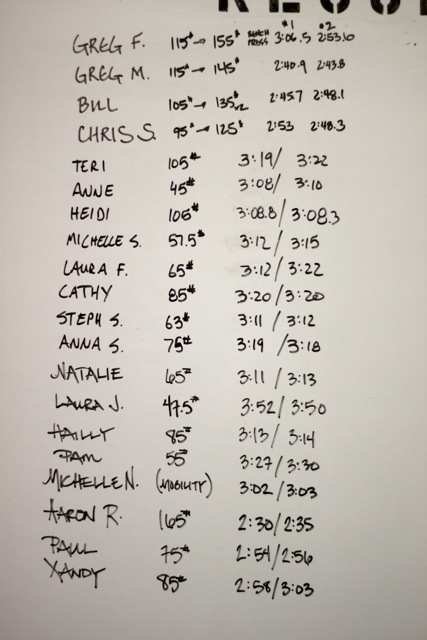 #1 #2
GREG F. 115# → 155# BENCH PRESS 3:06.5 2:53.6
GREG M. 115# → 145# 2:40.9 2:43.8
BILL 105# → 135#x2 2:45.7 2:48.1
CHRIS S. 95# → 125# 2:53 2:48.3
TERI 105# 3:19/ 3:22
ANNE 45# 3:08/ 3:10
HEIDI 105# 3:08.8/ 3:08.3
MICHELLE S. 57.5# 3:12/ 3:15
LAURA F. 65# 3:12/ 3:22
CATHY 85# 3:20/3:20
STEPH S. 63# 3:11/ 3:12
ANNA S. 75# 3:19 /3:18
NATALIE 65# 3:11/ 3:13
LAURA J. 47.5# 3:52/ 3:50
HAILLY 85# 3:13/ 3:14
PAM 55# 3:27/3:30
MICHELLE N. (MOBILITY) 3:02/3:03
AARON R. 165# 2:30/2:35
PAUL 75# 2:54/2:56
XANDY 85# 2:58/3:03